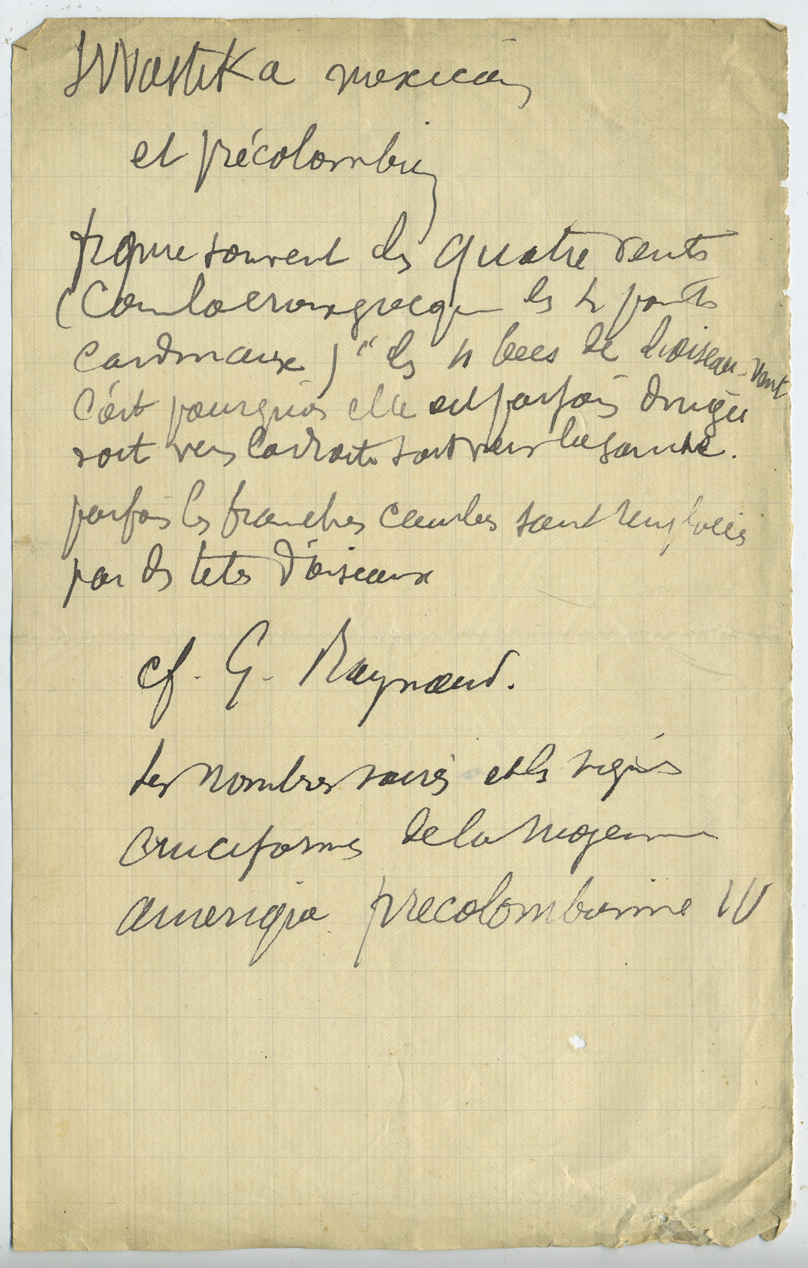 Swastika mexicain
et précolombien
figure souvent des quatre vents
(Comme la croix grecque les 4 points
cardinaux) " des 4 becs de l'oiseau-vent
C'est pourquoi elle est parfois dirigée
soit vers la droite soit vers la gauche.
parfois les branches courbes sont remplacées
par des têtes d'oiseaux
cf. G. Raynaud.
Les nombres sacrés et les signes
cruciformes de la moyenne
amerique précolombienne